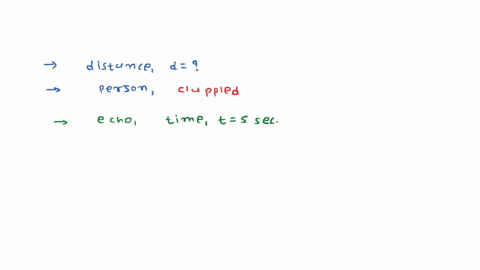 → distance, d = ?
→ person, cluppled
→ echo, time, t = 5 sec.